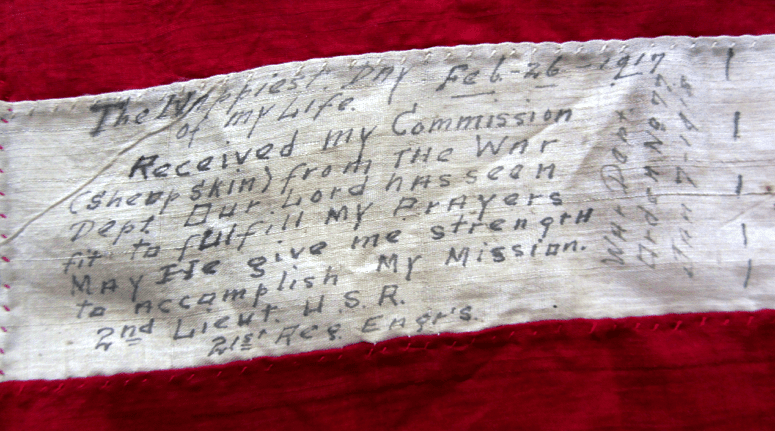 The Happiest Day Feb-26-1917
of my Life.
Received my Commission
(sheepskin) from THE WAR
Dept. Our Lord has seen
fit to fulfill My PrAyers
MAY He give me strength
to accomplish My Mission.
2nd Lieut. U.S.R.
21st Reg. Engr's.
War Dept
Order No 77
Jan 7-1918